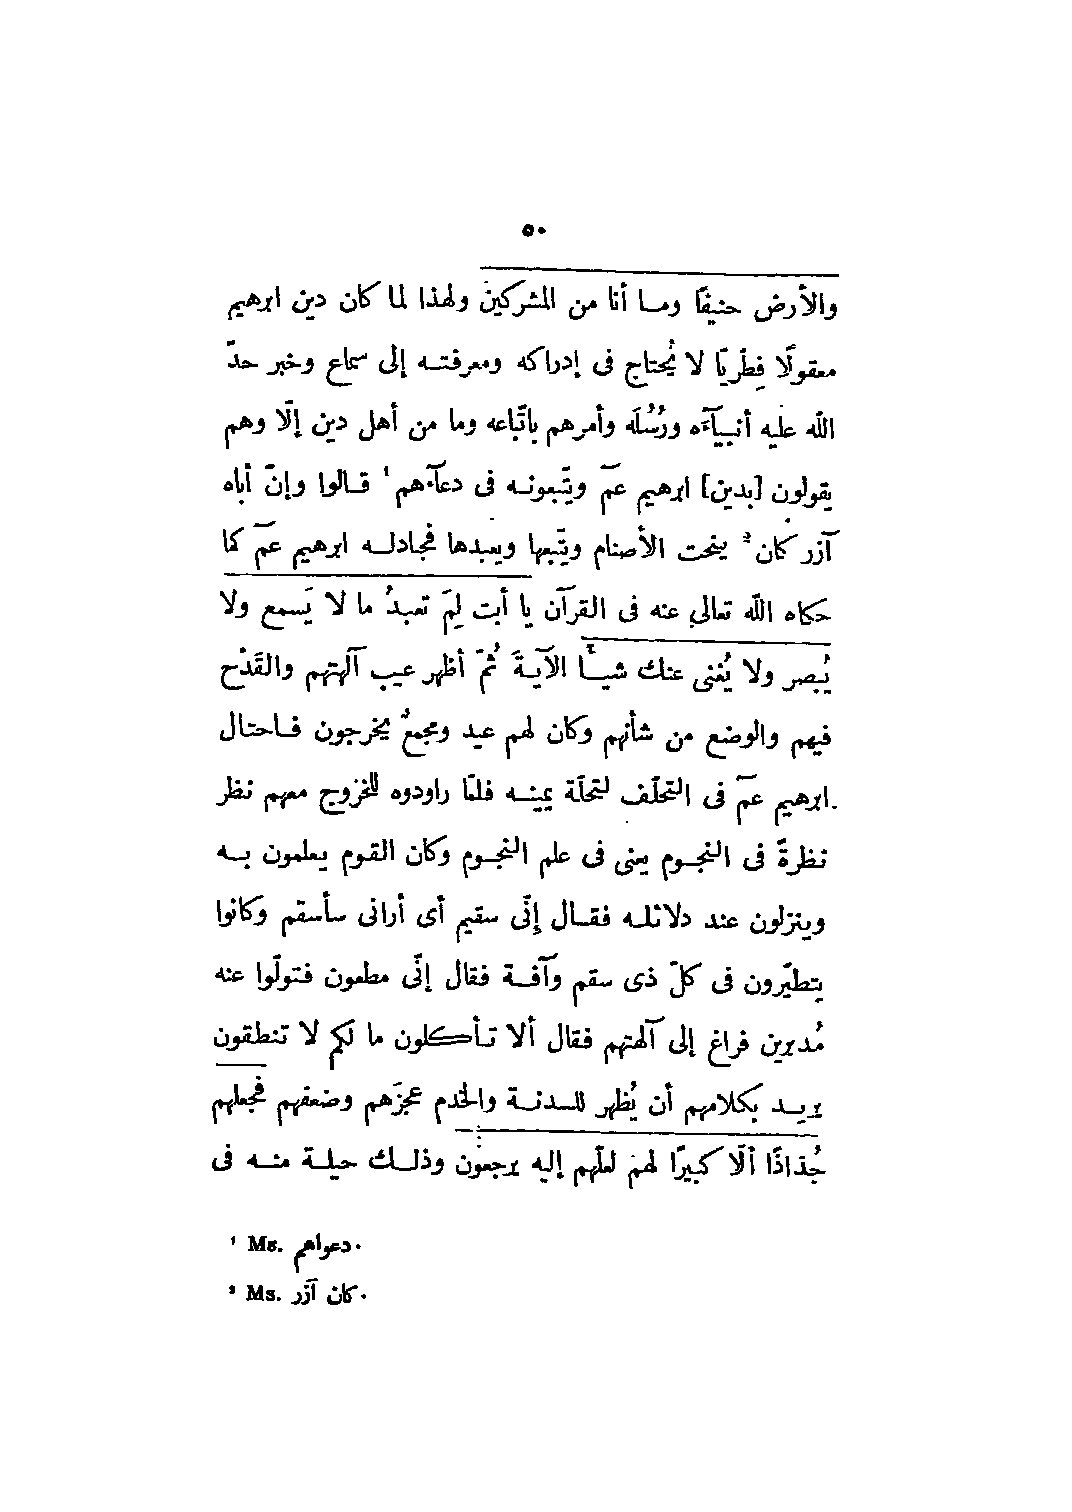 ٥٠
والأرض حنيفًا وما أنا من المشركين ولهذا لما كان دين ابرهيم
معقولًا فِطْريًا لا يُحتاج فى إدراكه ومعرفته إلى سماع وخبر حدّ
الله عليه أنبيآءه ورُسُلَه وأمرهم باتّباعه وما من أهل دين إلّا وهم
يقولون [بدين] ابرهيم عمٓ ويتّبعونه فى دعآءهم ¹ قالوا وإنّ أباه
آزر كان ² ينحت الأصنام ويتّبعها ويعبدها فجادله ابرهيم عمٓ كما
حكاه الله تعالى عنه فى القرآن يا أبت لِمَ تعبدُ ما لا يَسمع ولا
يُبصر ولا يُغنى عنك شيأً الآيةَ ثُمّ أظهر عيب آلهتهم والقَدْح
فيهم والوضع من شأنهم وكان لهم عيد ومجمعٌ يخرجون فاحتال
ابرهيم عمٓ فى التخلّف لتحلّة يمينه فلمّا راودوه للخروج معهم نظر
نظرةً فى النجوم يعنى فى علم النجوم وكان القوم يعلمون به
وينزلون عند دلائله فقال إنّى سقيم أى أرانى سأسقم وكانوا
يتطيّرون فى كلّ ذى سقم وآفة فقال إنّى مطعون فتولّوا عنه
مُدبرين فراغ إلى آلهتهم فقال ألا تأكلون ما لكم لا تنطقون
يريد بكلامهم أن يُظهر للسدنة والخدم عجزَهم وضعفهم فجعلهم
جُذاذًا ألّا كبيرًا لهم لعلّهم إليه يرجعون وذلك حيلة منه فى
¹ Ms. دعواهم.
² Ms. كان آزر.